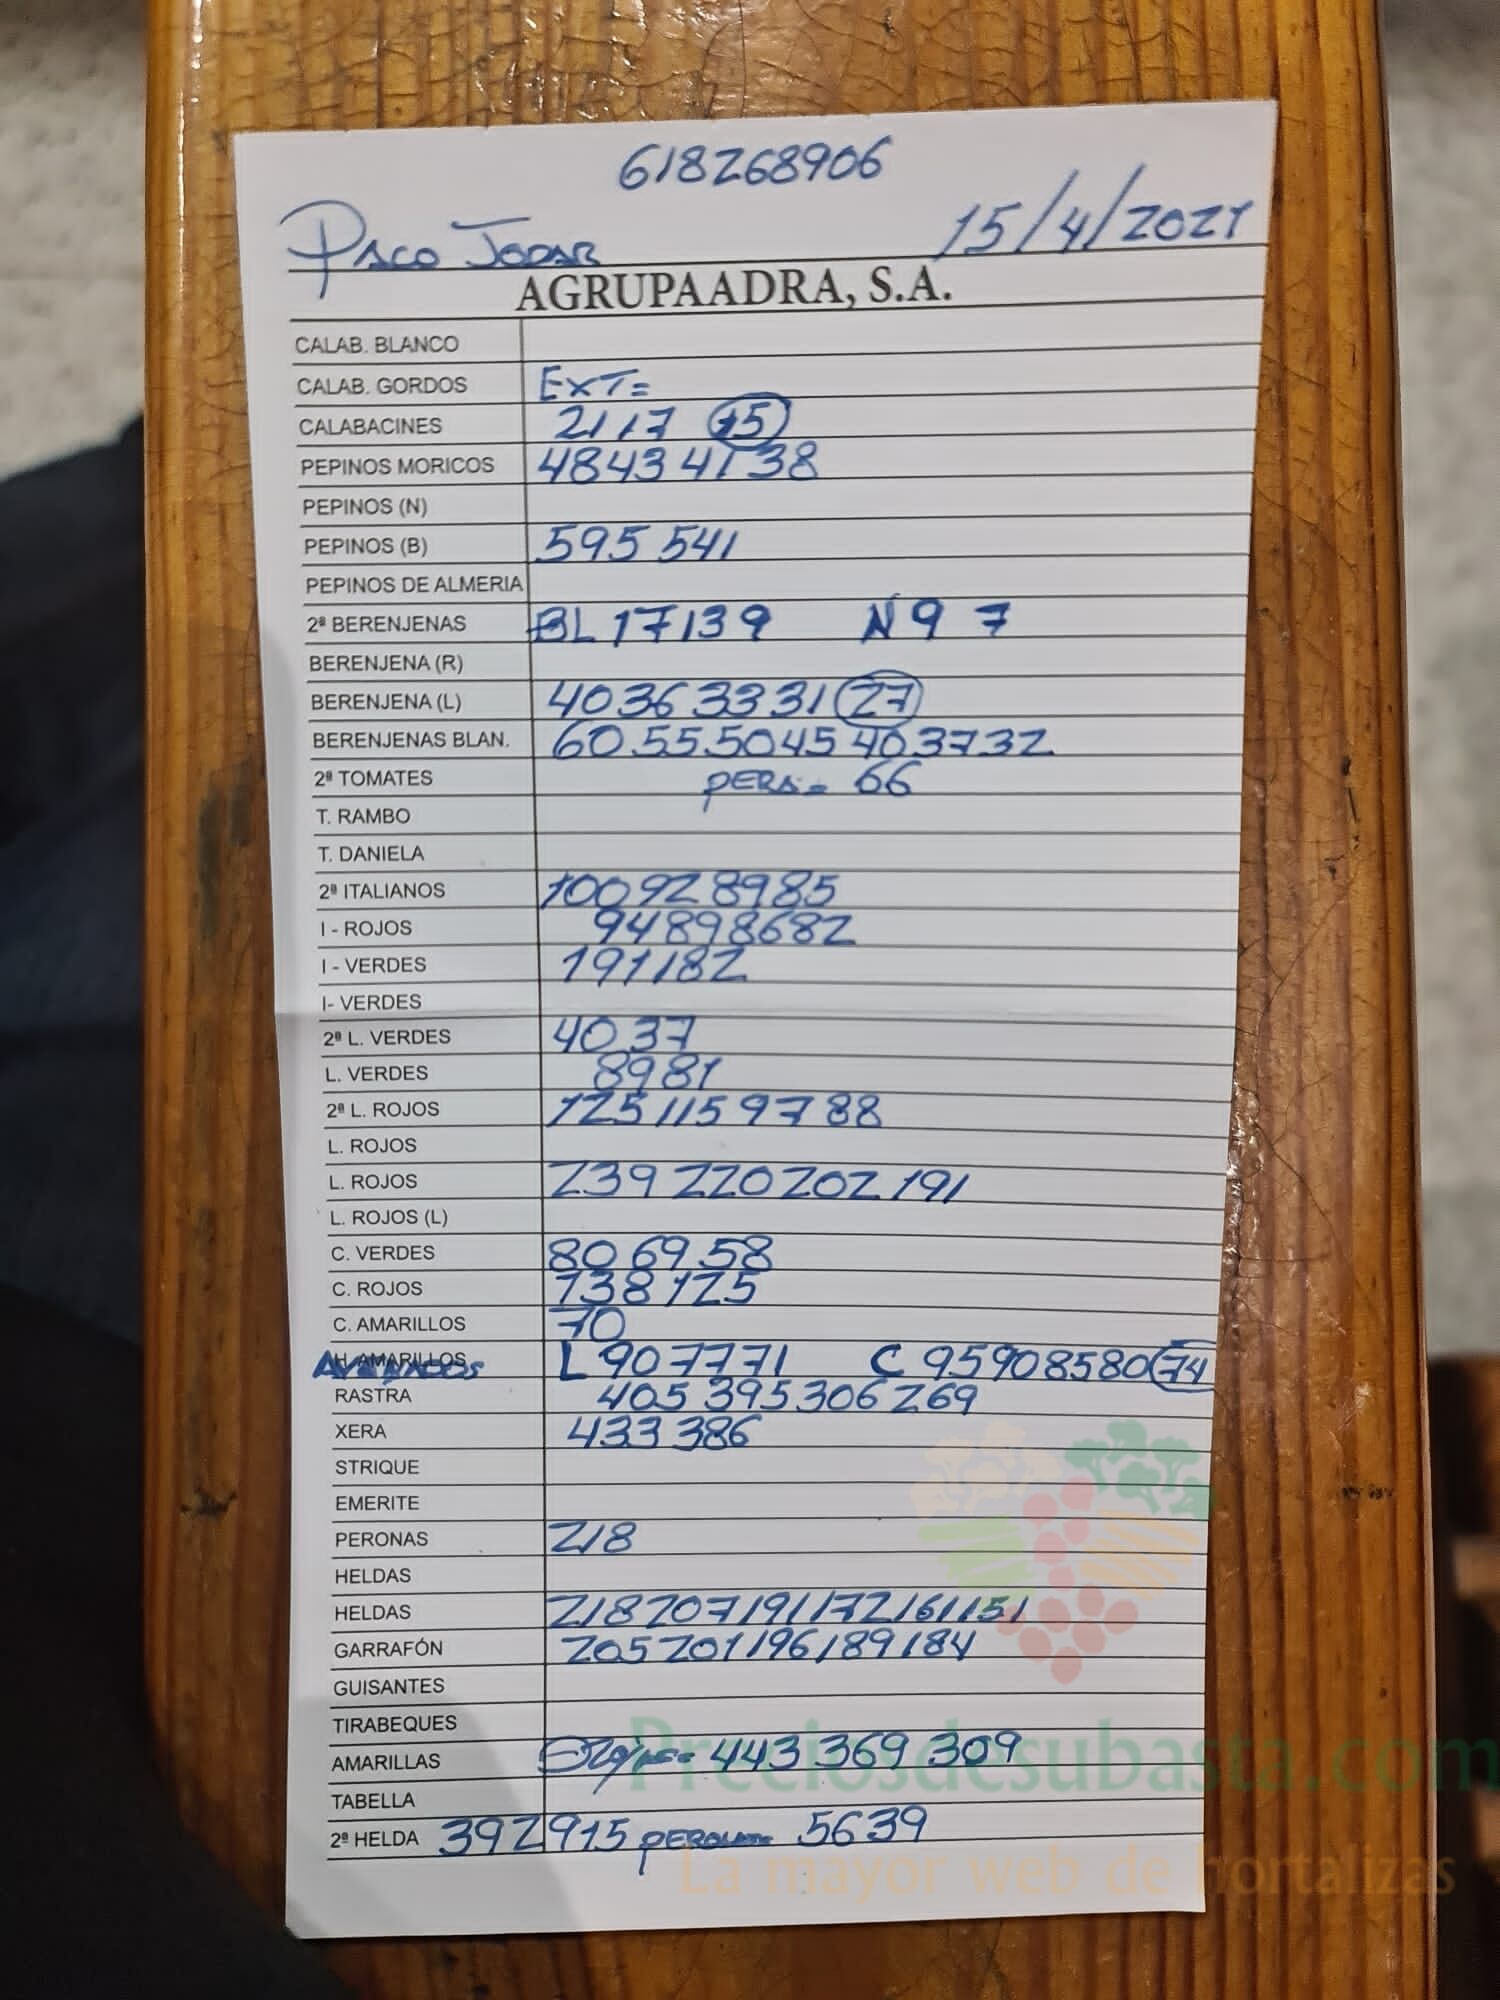 618268906
PACO JODAR 15/4/2021
AGRUPAADRA, S.A.
CALAB. BLANCO
CALAB. GORDOS EXT=
CALABACINES 21 17 15
PEPINOS MORICOS 48 43 41 38
PEPINOS (N)
PEPINOS (B) 595 541
PEPINOS DE ALMERIA
2ª BERENJENAS BL 17 13 9 N 9 7
BERENJENA (R)
BERENJENA (L) 40 36 33 31 27
BERENJENAS BLAN. 60 55 50 45 40 37 32
2ª TOMATES PERA= 66
T. RAMBO
T. DANIELA
2ª ITALIANOS 100 92 89 85
I - ROJOS 94 89 86 82
I - VERDES 191 182
I- VERDES
2ª L. VERDES 40 37
L. VERDES 89 81
2ª L. ROJOS 125 115 97 88
L. ROJOS
L. ROJOS 239 220 202 191
L. ROJOS (L)
C. VERDES 80 69 58
C. ROJOS 138 125
C. AMARILLOS 70
H. AMARILLOS L 90 77 71 C 95 90 85 80 74
RASTRA 405 395 306 269
XERA 433 386
STRIQUE
EMERITE
PERONAS 218
HELDAS
HELDAS 218 207 191 172 161 151
GARRAFÓN 205 201 196 189 184
GUISANTES
TIRABEQUES
AMARILLAS 443 369 309
TABELLA
2ª HELDA 39 29 15 5639
Preciosdesubasta.com
La mayor web de hortalizas